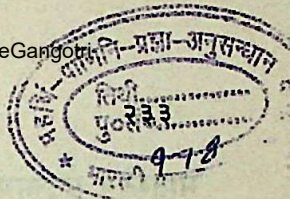 eGangotri
महर्षि-पाणिनि-प्रज्ञा-अनुसन्धान
तिथी..............
पु०सं.२३३.........
9-1-8